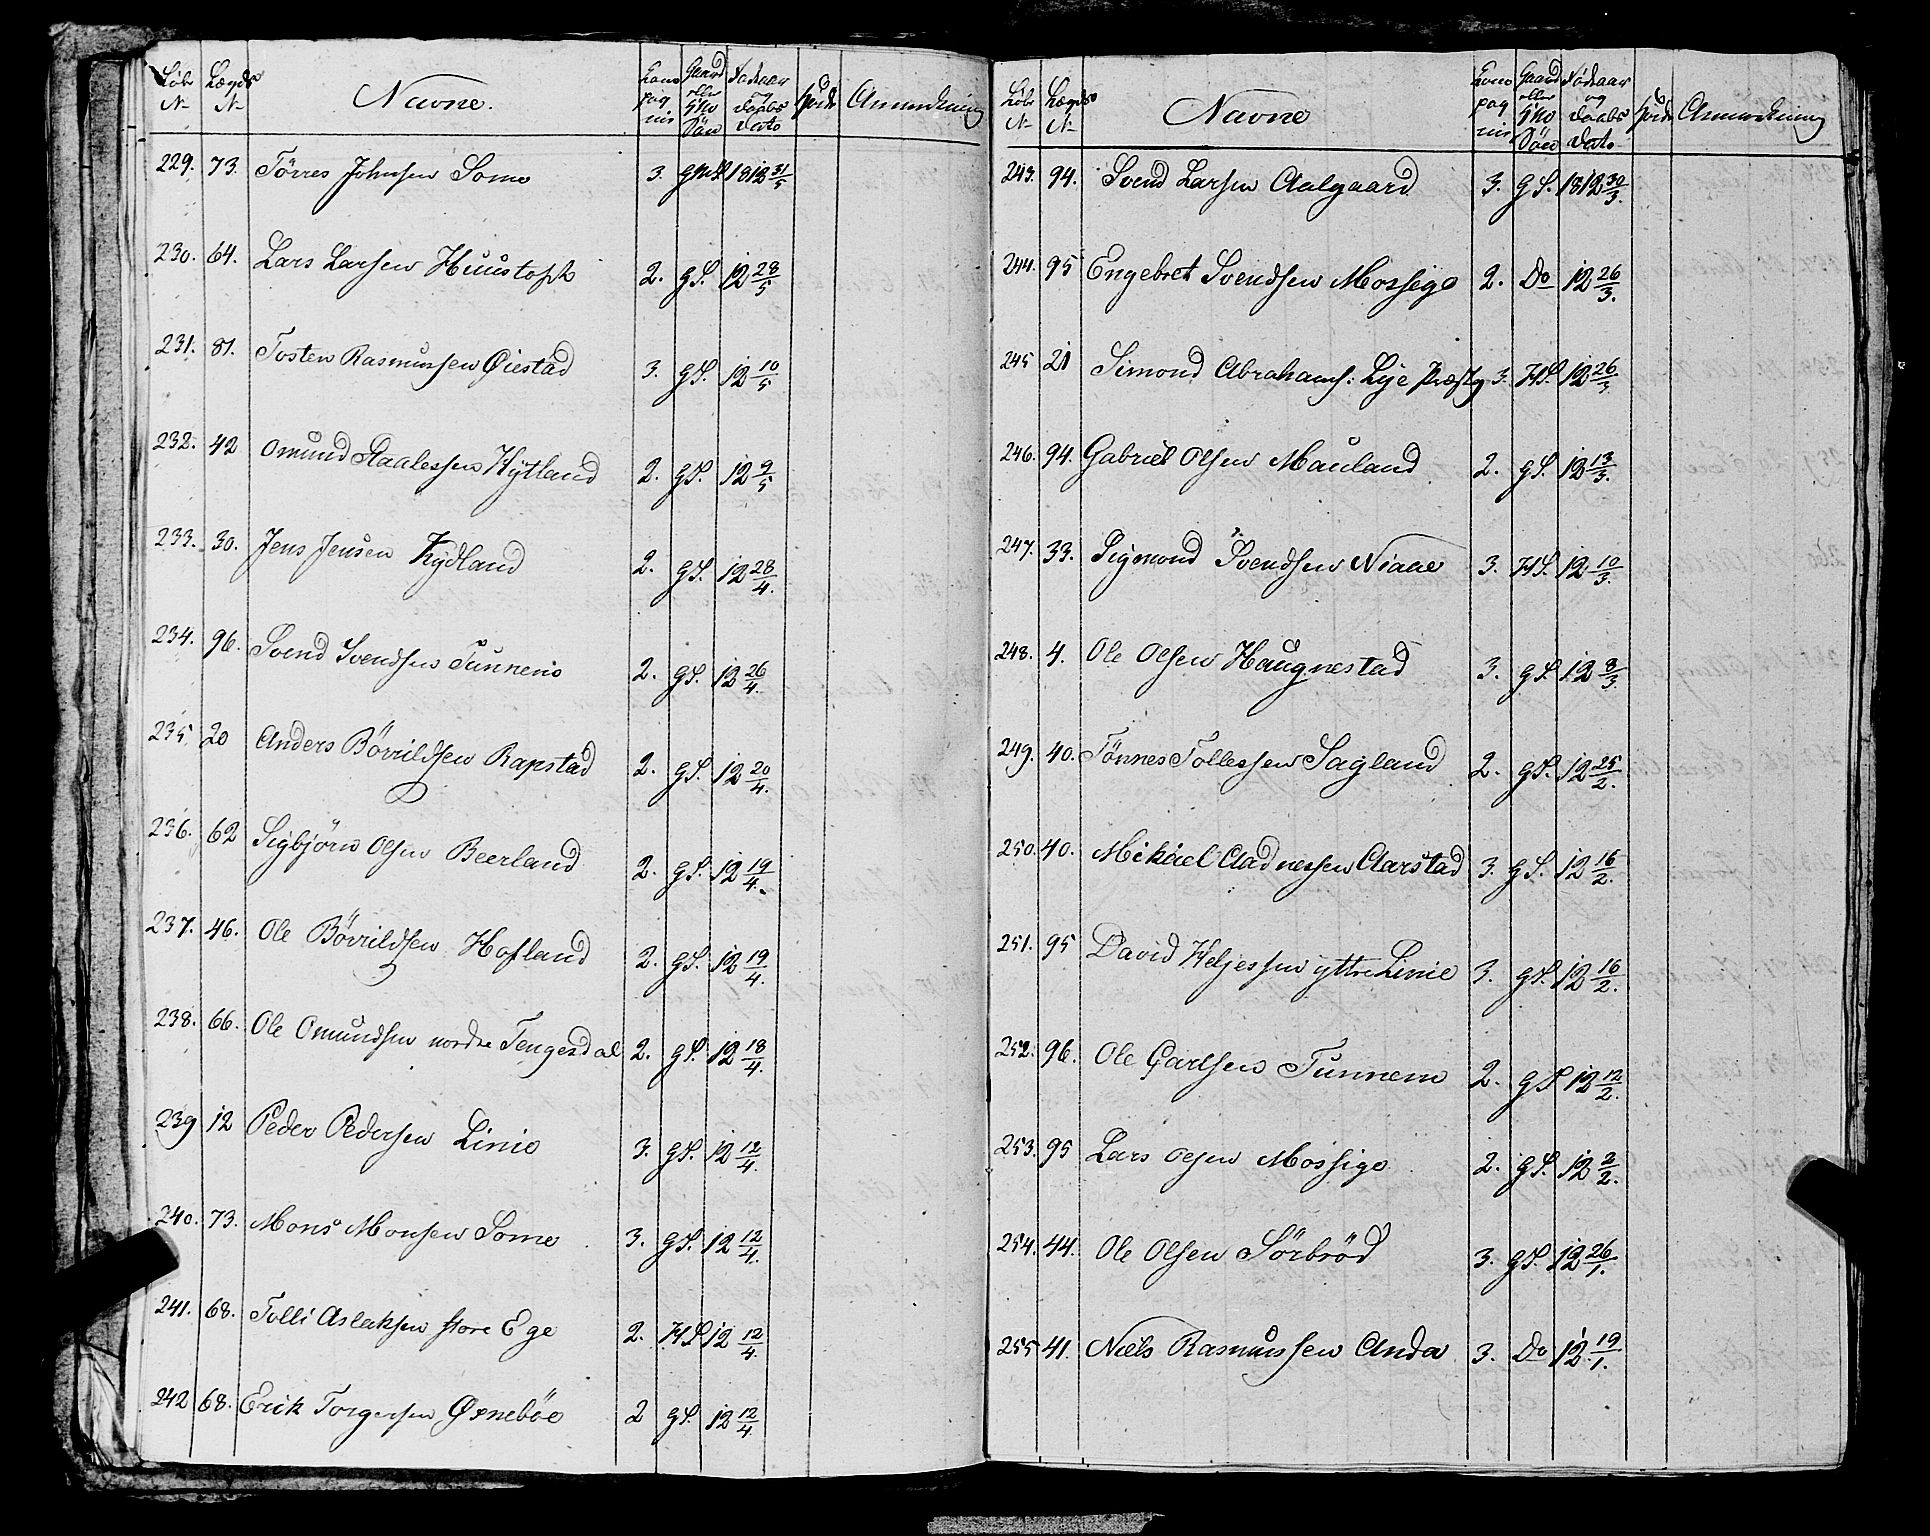 Løb N= Lægds N= Navne. Kompagnie Gaard eller H.Md Søn Fødeaar og Daabs Dato Høide Anmærkning
229. 73. Törres Johnsen Some 3. 1812 31/5
230. 64. Lars Larsen Huustoft 2. g S. 12 28/5
231. 81. Tosten Rasmussen Øiestad 3. g S. 12 10/5
232. 42 Omund Staalessen Hytland 2. g S. 12 9/5
233. 30. Jens Jensen Kydland 2. g S. 12 28/4.
234. 96. Svend Svendsen Tunnem 2. g S. 12 26/4.
235. 20 Anders Börrildsen Rapstad 2. g S. 12 20/4.
236. 62 Sigbjörn Olsen Beerland 2. g S. 12 19/4.
237. 46. Ole Börrildsen Hofland 2. g S. 12 19/4.
238. 66. Ole Omundsen nordre Tengesdal 2. g S. 12 18/4.
239 12 Peder Pedersen Linie 3. g S. 12 12/4.
240. 73. Mons Monsen Some 3. g S. 12 12/4.
241. 68. Tolli Aslaksen store Ege 2. H S 12 12/4.
242 68. Erik Torgersen Øsnebøe 2 g S. 12 12/4.
Løb N= Lægds N= Navne Kompagnie Gaard eller H.Md Søn Fødeaar og Daabs Dato Høide Anmærkning
243. 94. Svend Larsen Aalgaard 3. g S. 1812 30/3.
244. 95 Engebret Svendsen Mossige 2. Do 12 26/3.
245 21 Simond Abrahams: Lye Præstg 3. H S. 12 26/3.
246. 94. Gabriel Olsen Mauland 2. g S. 12 13/3.
247. 33. Sigmond Svendsen Niaae 3. H S. 12 10/3.
248. 4. Ole Olsen Haugnestad 3. g S. 12 8/3.
249. 40. Tönnes Tollessen Sagland 2. g S. 12 25/2.
250. 40. Mikael Aadnessen Aarstad 3. g S. 12 16/2.
251. 95 David Heljessen yttre Linie 3. g S. 12 16/2.
252. 96. Ole Carlsen Tunnem 2. g S 12 12/2.
253. 95 Lars Olsen Mossige 2. g S. 12 2/2.
254. 44. Ole Olsen Sörbröd 3. g S. 12 26/1.
255 41. Niels Rasmussen Anda 3. Do 12. 19/1.